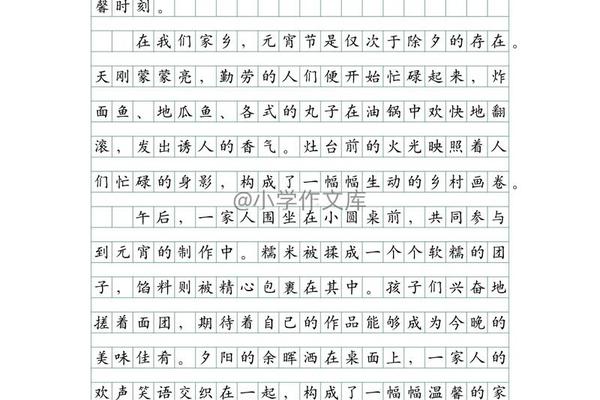 馨时刻。
在我们家乡，元宵节是仅次于除夕的存在。
天刚蒙蒙亮，勤劳的人们便开始忙碌起来，炸
面鱼、地瓜鱼、各式的丸子在油锅中欢快地翻
滚，发出诱人的香气。灶台前的火光映照着人
们忙碌的身影，构成了一幅幅生动的乡村画卷。
@小学作文库
午后，一家人围坐在小圆桌前，共同参与
到元宵的制作中。糯米被揉成一个个软糯的团
子，馅料则被精心包裹在其中。孩子们兴奋地
搓着面团，期待着自己的作品能够成为今晚的
美味佳肴。夕阳的余晖洒在桌面上，一家人的
欢声笑语交织在一起，构成了一幅幅温馨的家